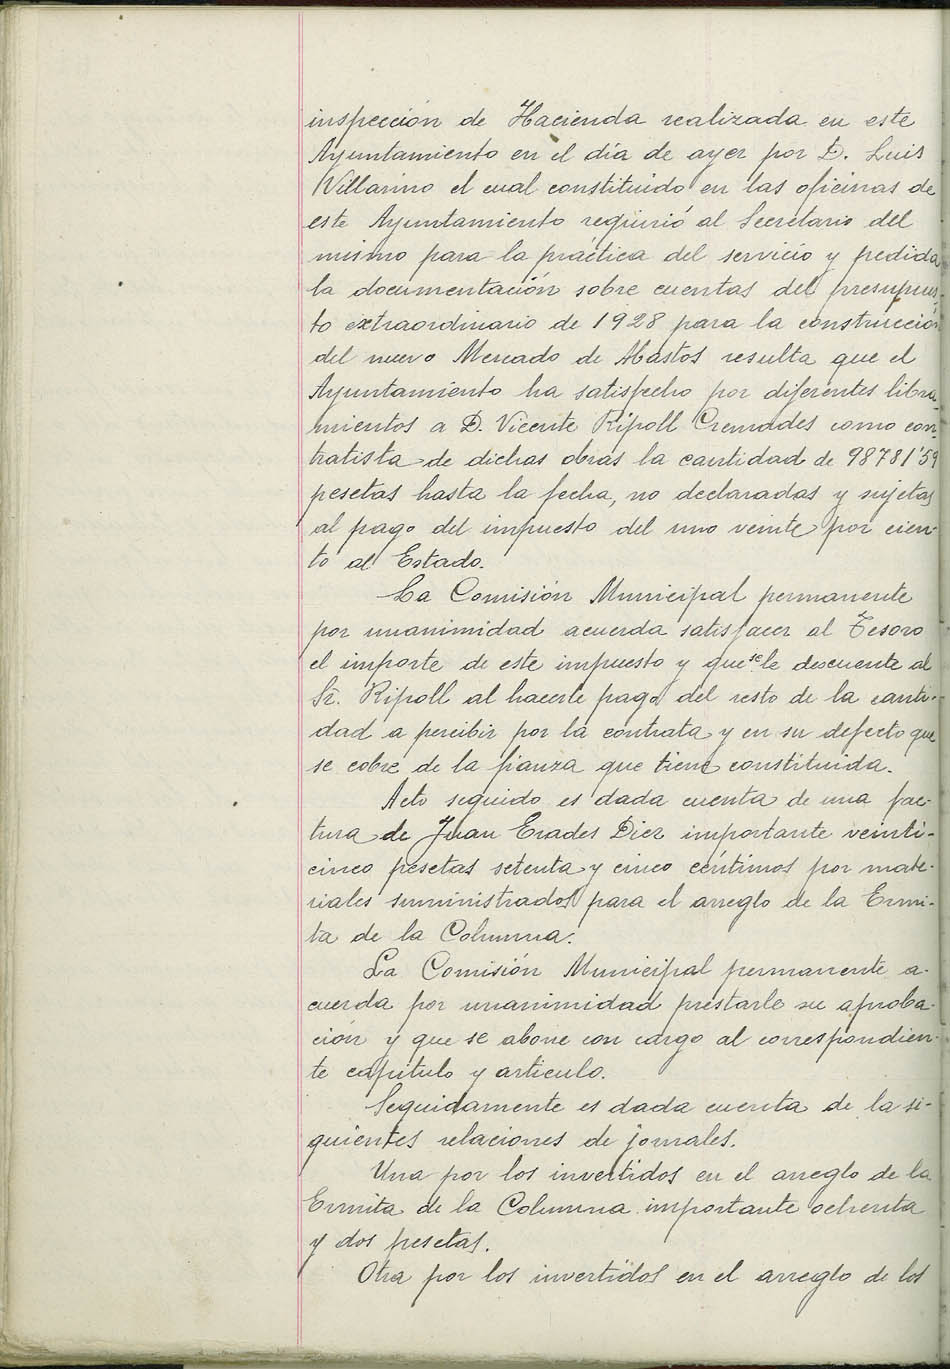 inspección de Hacienda realizada en este
Ayuntamiento en el día de ayer por D. Luis
Villarino el cual constituido en las oficinas de
este Ayuntamiento requirió al Secretario del
mismo para la práctica del servicio y pedida
la documentación sobre cuentas del presupues-
to extraordinario de 1928 para la construcción
del nuevo Mercado de Abastos resulta que el
Ayuntamiento ha satisfecho por diferentes libra-
mientos a D. Vicente Ripoll Cremades como con-
tratista de dichas obras la cantidad de 98781'59
pesetas hasta la fecha, no declaradas y sujetas
al pago del impuesto del uno veinte por cien-
to al Estado.
La Comisión Municipal permanente
por unanimidad acuerda satisfacer al Tesoro
el importe de este impuesto y que se le descuente al
Sr. Ripoll al hacerle pago del resto de la canti-
dad a percibir por la contrata y en su defecto que
se cobre de la fianza que tiene constituida.
Acto seguido es dada cuenta de una fac-
tura de Juan Erades Diez importante veinti-
cinco pesetas setenta y cinco céntimos por mate-
riales suministrados para el arreglo de la Ermi-
ta de la Columna.
La Comisión Municipal permanente a-
cuerda por unanimidad prestarle su aproba-
ción y que se abone con cargo al correspondien-
te capitulo y articulo.
Seguidamente es dada cuenta de la si-
guientes relaciones de jornales.
Una por los invertidos en el arreglo de la
Ermita de la Columna importante ochenta
y dos pesetas.
Otra por los invertidos en el arreglo de los